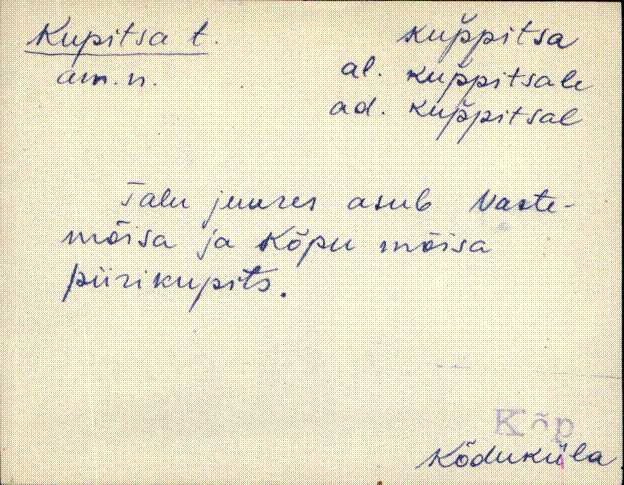 Kupitsa t.
am. n.
kup̆pitsa
al. kup̆pitsale
ad. kup̆pitsal
Talu juures asub Vaste-
mõisa ja Kõpu mõisa
piirikupits.
Kõp
Kõduküla